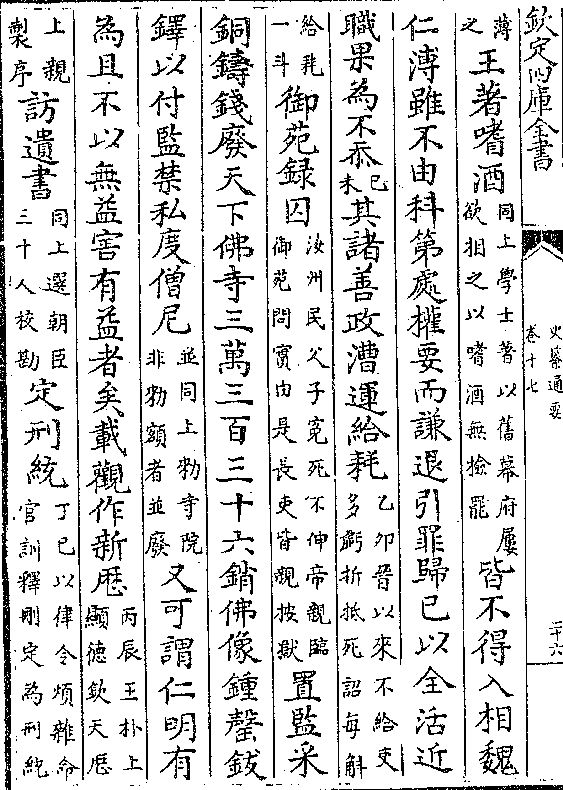 欽定四庫全書
史纂通要
卷十七
二十六
薄之王著嗜酒同上學士著以舊幕府屢欲相之以嗜酒無檢罷皆不得入相魏
仁溥雖不由科第處權要而謙退引罪歸己以全活近
職果為不忝已未其諸善政漕運給耗乙卯晉以來不給吏多虧折抵死詔每斛
給耗一斗御苑録囚汝州民父子寃死不伸帝親臨御苑問實由是長吏皆親披獄置監采
銅鑄錢廢天下佛寺三萬三百三十六銷佛像鍾磬鈸
鐸以付監禁私度僧尼並同上勑寺院非勑額者並廢又可謂仁明有
為且不以無益害有益者矣載觀作新厯丙辰王朴上顯德欽天厯
上親製序訪遺書同上選朝臣三十人校勘定刑統丁巳以律令煩雜命官訓釋刪定為刑統